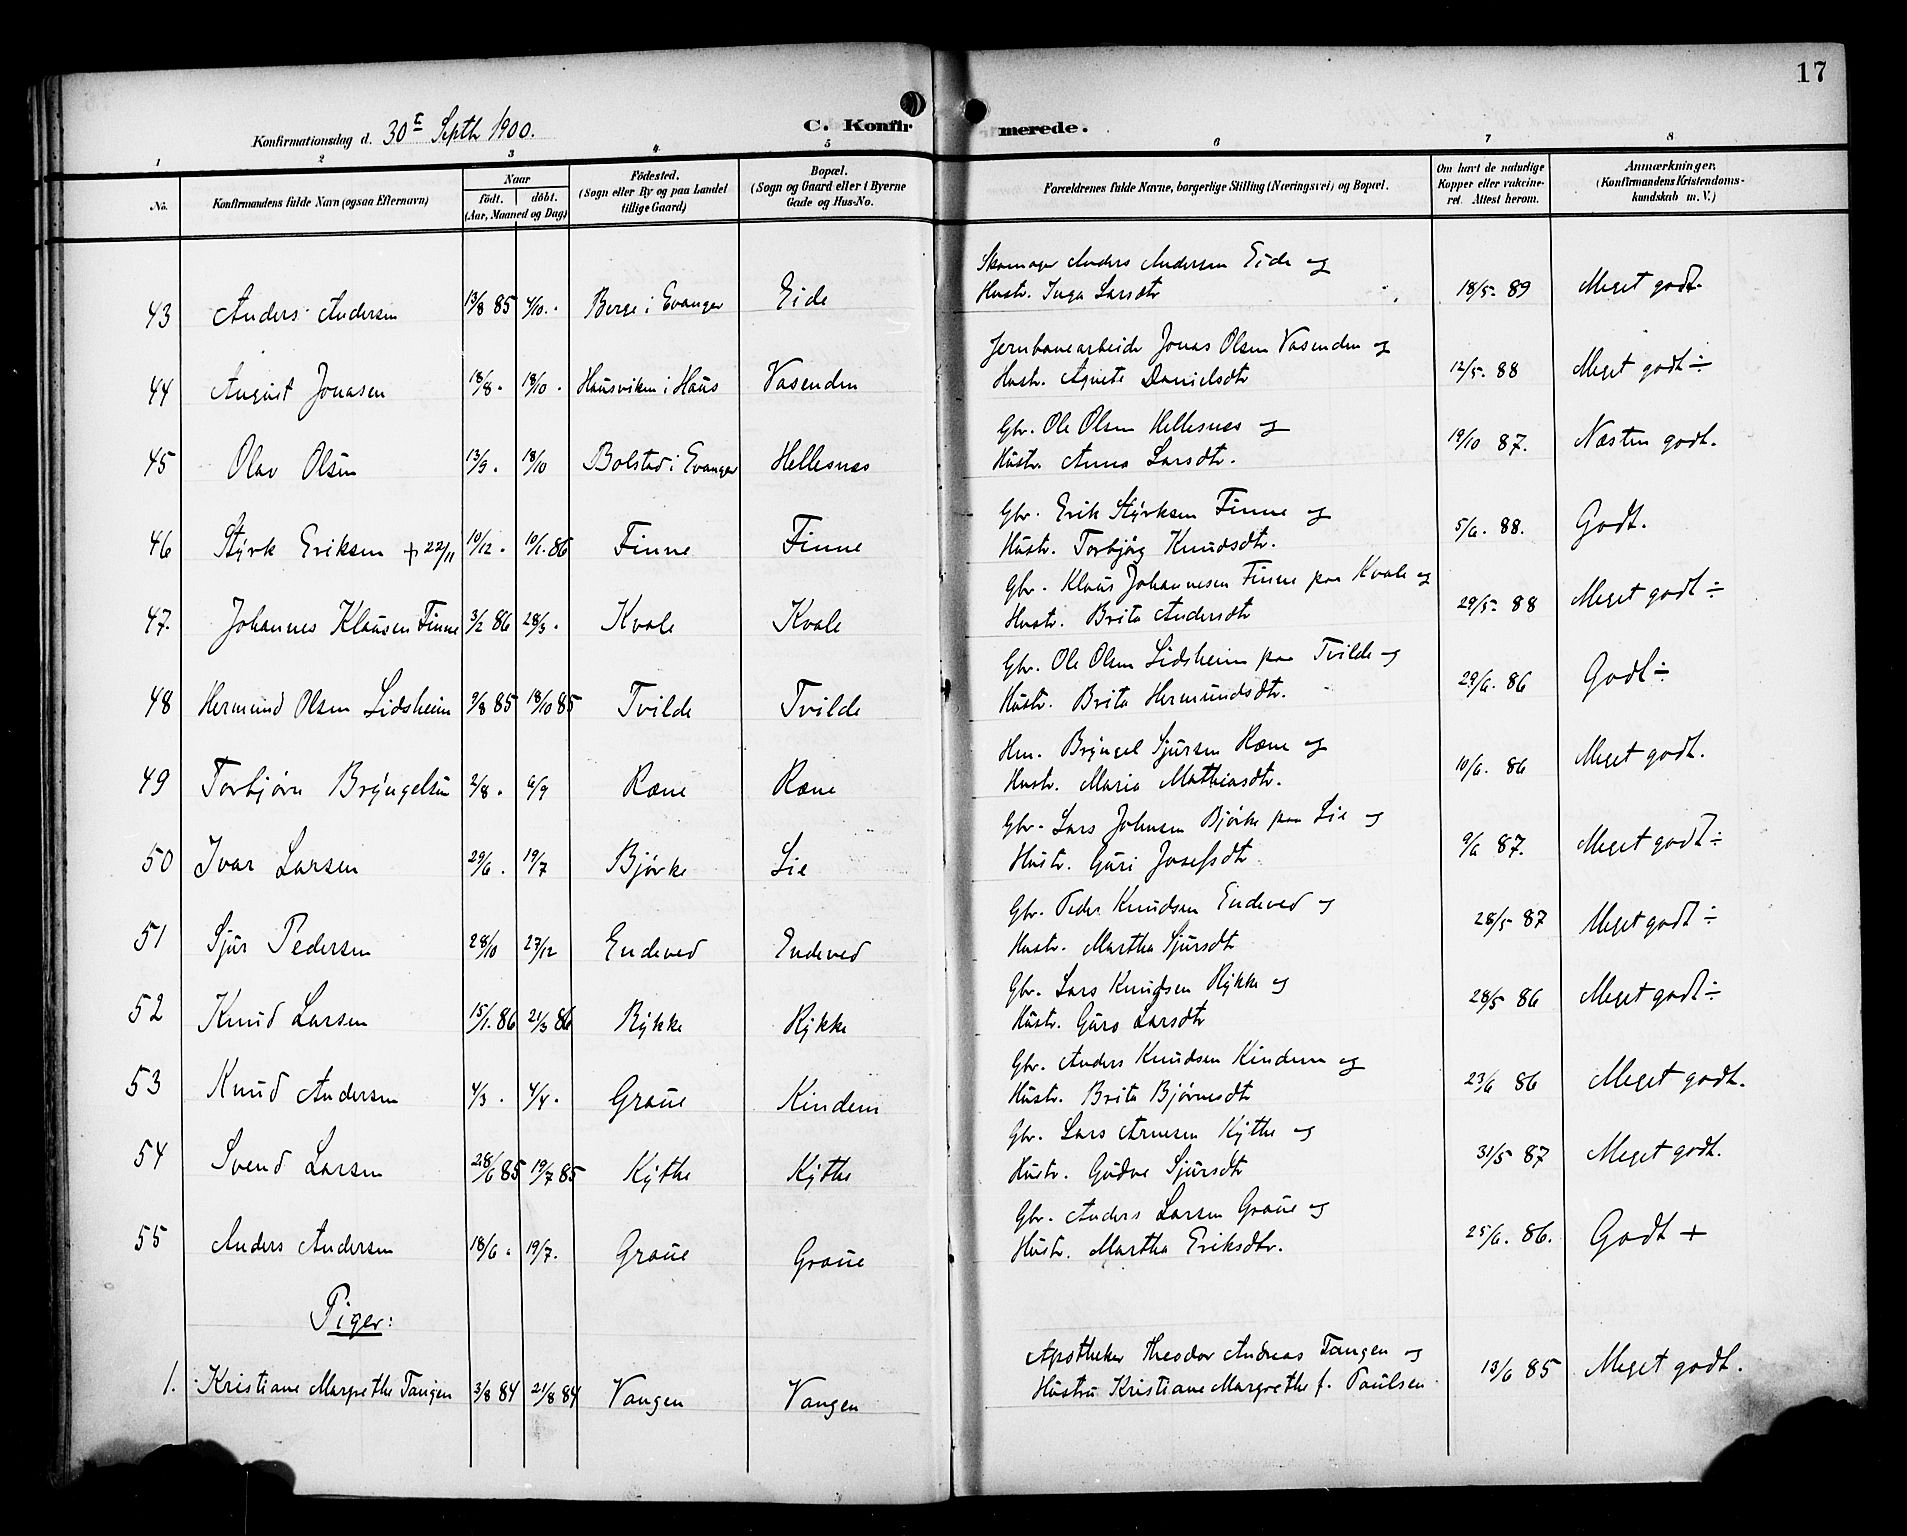 17
Konfirmationsdag d. 30te Septbr 1900.
C. Konfirmerede.
1 2 3 4 5 6 7 8
No.
Konfirmandens fulde Navn (ogsaa Efternavn)
Naar
født. døbt.
(Aar, Maaned og Dag)
Fødested.
(Sogn eller By og paa Landet
tillige Gaard)
Bopæl.
(Sogn og Gaard eller i Byerne
Gade og Hus-No.
Forældrenes fulde Navne, borgerlige Stilling (Næringsvei) og Bopæl.
Om havt de naturlige
Kopper eller vakcine-
ret. Attest herom.
Anmærkninger.
(Konfirmandens Kristendoms-
kundskab m. V.)
Skomager Anders Andersen Eide og
43 Anders Andersen 13/8 85 4/10 . Berge i Evanger Eide Hustr. Inga Larsdtr 18/5. 89 Meget godt.
Jernbanearbeider Jonas Olsen Vasenden og
44 August Jonasen 18/8 . 18/10 . Hausviken i Haus Vasenden Hustr. Agnete Danielsdtr 12/5. 88 Meget godt ÷
Gbr. Ole Olsen Hellesnes og
45 Olav Olsen 13/9 . 18/10 Bolstad i Evanger Hellesnes Hustr. Anna Larsdtr. 19/10 87. Næsten godt.
Gbr. Erik Styrksen Finne og
46 Styrk Eriksen + 22/11 10/12 . 10/1. 86 Finne Finne Hustr. Torbjør Knudsdtr. 5/6. 88. Godt.
Gbr. Klaus Johannesen Finne paa Kvale og
47. Johannes Klausen Finne 3/2 86 28/3 . Kvale Kvale Hustr. Brita Andersdtr 29/5. 88 Meget godt ÷
Gbr. Ole Olsen Lidsheim paa Tvilde og
48 Hermund Olsen Lidsheim 9/8 85 18/10 85 Tvilde Tvilde Hustr. Brita Hermundsdtr. 29/6. 86 Godt ÷
Hm. Bryngel Sjursen Ræne og
49 Torbjørn Bryngelsen 2/8 . 6/9 Ræne Ræne Hustr. Maria Mathiasdtr. 10/6. 86 Meget godt.
Gbr. Lars Johnsen Bjørke paa Lie og
50 Ivar Larsen 29/6 . 19/7 Bjørke Lie Hustr. Guri Josefsdtr 9/6 87. Meget godt ÷
Gbr. Peder Knudsen Endeved og
51 Sjur Pedersen 28/10 27/12 Endeved Endeved Hustr. Martha Sjursdtr 28/5 87 Meget godt ÷
Gbr. Lars Knudsen Rykke og
52 Knud Larsen 15/1. 86 21/3 86 Rykke Rykke Hustr. Guro Larsdtr 28/5 86 Meget godt ÷
Gbr. Anders Knudsen Kindem og
53 Knud Andersen 4/3 . 4/4 . Graue Kindem Hustr. Brita Bjørnesdtr 23/6 86 Meget godt.
Gbr. Lars Arnesen Kythe og
54 Svend Larsen 28/6 85 19/7 85 Kythe Kythe Hustr. Gudve Sjursdtr 31/5 87 Meget godt.
Gbr. Anders Larsen Graue og
55 Anders Andersen 18/6 . 19/7. Graue Graue Hustr. Martha Eriksdtr. 25/6. 86. Godt +
Piger:
Apotheker Theodor Andreas Tangen og
1. Kristiane Margrethe Tangen 3/8 84 21/8 84 Vangen Vangen Hustru Kristiane Margrethe f. Paulsen 13/6 85 Meget godt.